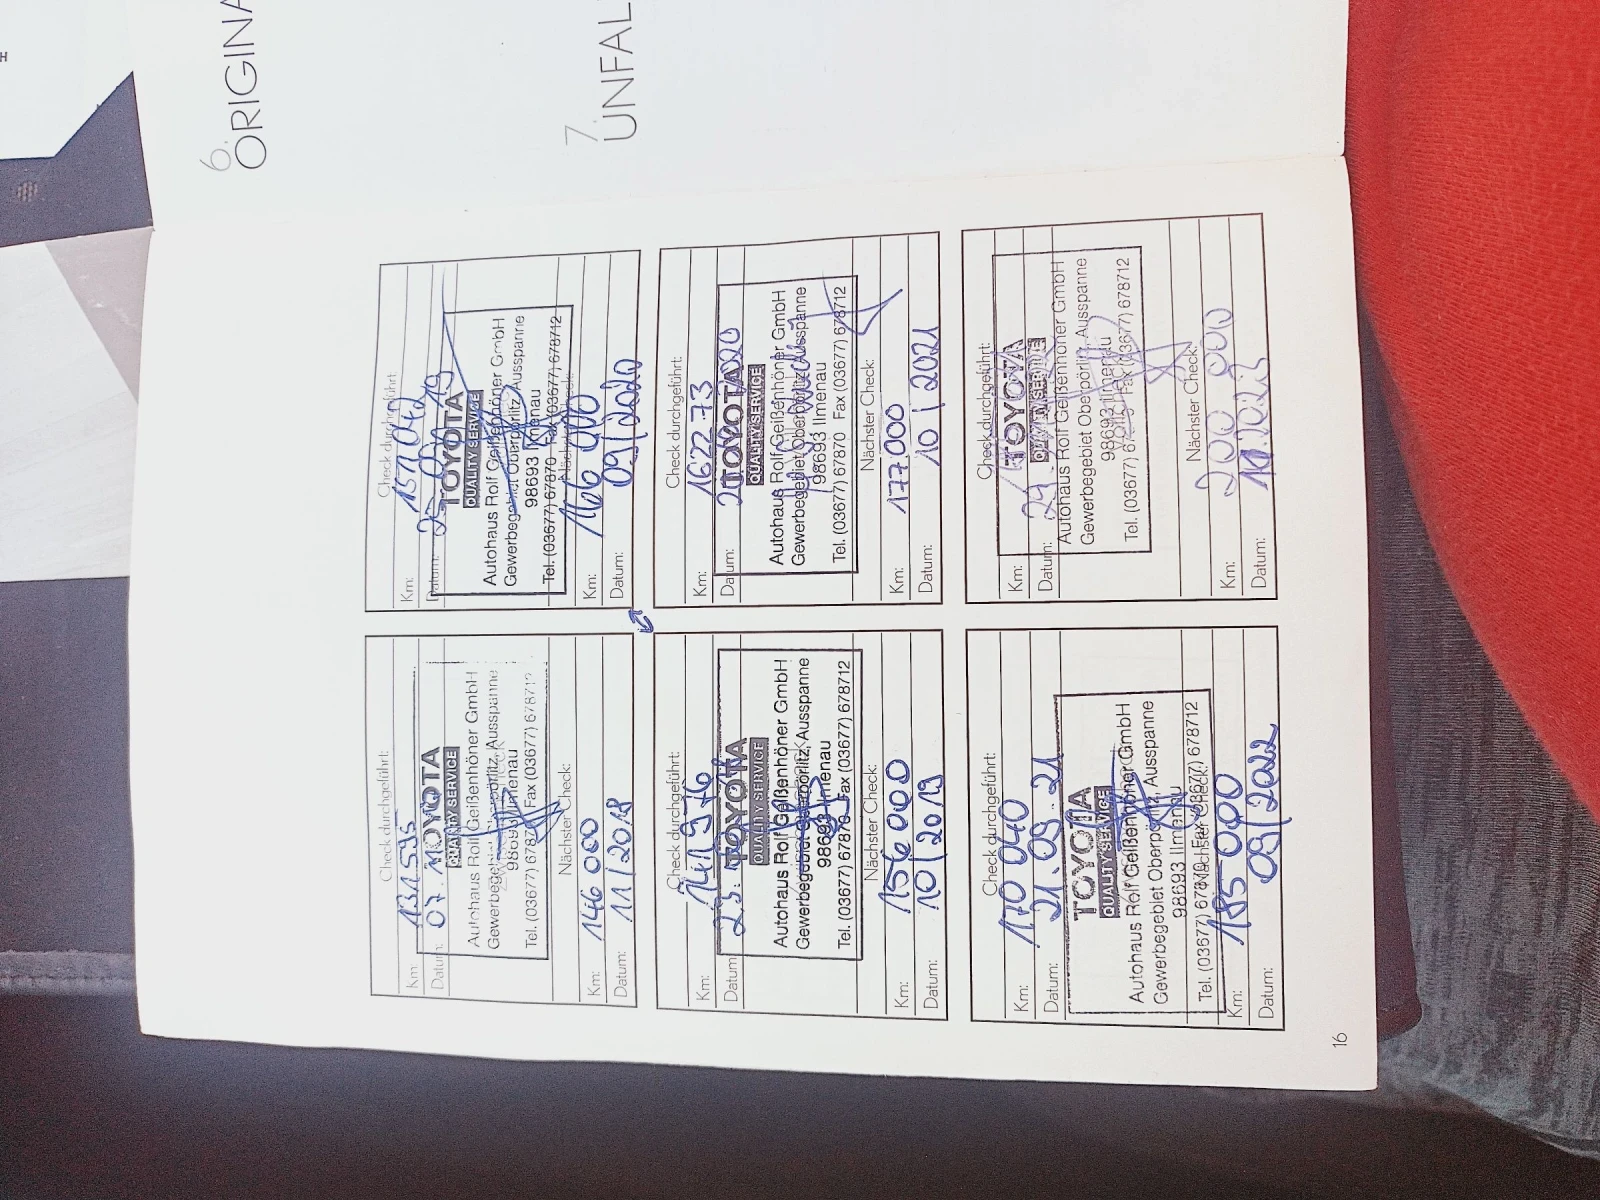 6.
ORIGINA
7.
UNFAL
Check durchgeführt:
Km: 131595
Datum: 07.
TOYOTA
QUALITY SERVICE
Autohaus Rolf Geißenhöner GmbH
Gewerbegebiet Oberpörlitz, Ausspanne
98693 Ilmenau
Tel. (03677) 67870 Fax (03677) 678712
Nächster Check:
Km: 146 000
Datum: 11/2018
Check durchgeführt:
Km:
Datum:
TOYOTA
QUALITY SERVICE
Autohaus Rolf Geißenhöner GmbH
Gewerbegebiet Oberpörlitz, Ausspanne
98693 Ilmenau
Tel. (03677) 67870 Fax (03677) 678712
Nächster Check:
Km: 166 000
Datum: 09/2020
Check durchgeführt:
Km: 141976
Datum: 23.
TOYOTA
QUALITY SERVICE
Autohaus Rolf Geißenhöner GmbH
Gewerbegebiet Oberpörlitz, Ausspanne
98693 Ilmenau
Tel. (03677) 67870 Fax (03677) 678712
Nächster Check:
Km: 156000
Datum: 10/2019
Check durchgeführt:
Km: 162273
Datum:
TOYOTA
QUALITY SERVICE
Autohaus Rolf Geißenhöner GmbH
Gewerbegebiet Oberpörlitz, Ausspanne
98693 Ilmenau
Tel. (03677) 67870 Fax (03677) 678712
Nächster Check:
Km: 177.000
Datum: 10/2021
Check durchgeführt:
Km: 170 040
Datum: 21.09.21
TOYOTA
QUALITY SERVICE
Autohaus Rolf Geißenhöner GmbH
Gewerbegebiet Oberpörlitz, Ausspanne
98693 Ilmenau
Tel. (03677) 67870 Fax (03677) 678712
Nächster Check:
Km: 185 000
Datum: 09/2022
Check durchgeführt:
Km:
Datum:
TOYOTA
QUALITY SERVICE
Autohaus Rolf Geißenhöner GmbH
Gewerbegebiet Oberpörlitz, Ausspanne
98693 Ilmenau
Tel. (03677) 67870 Fax (03677) 678712
Nächster Check:
Km: 200 000
Datum: 10.2023
16